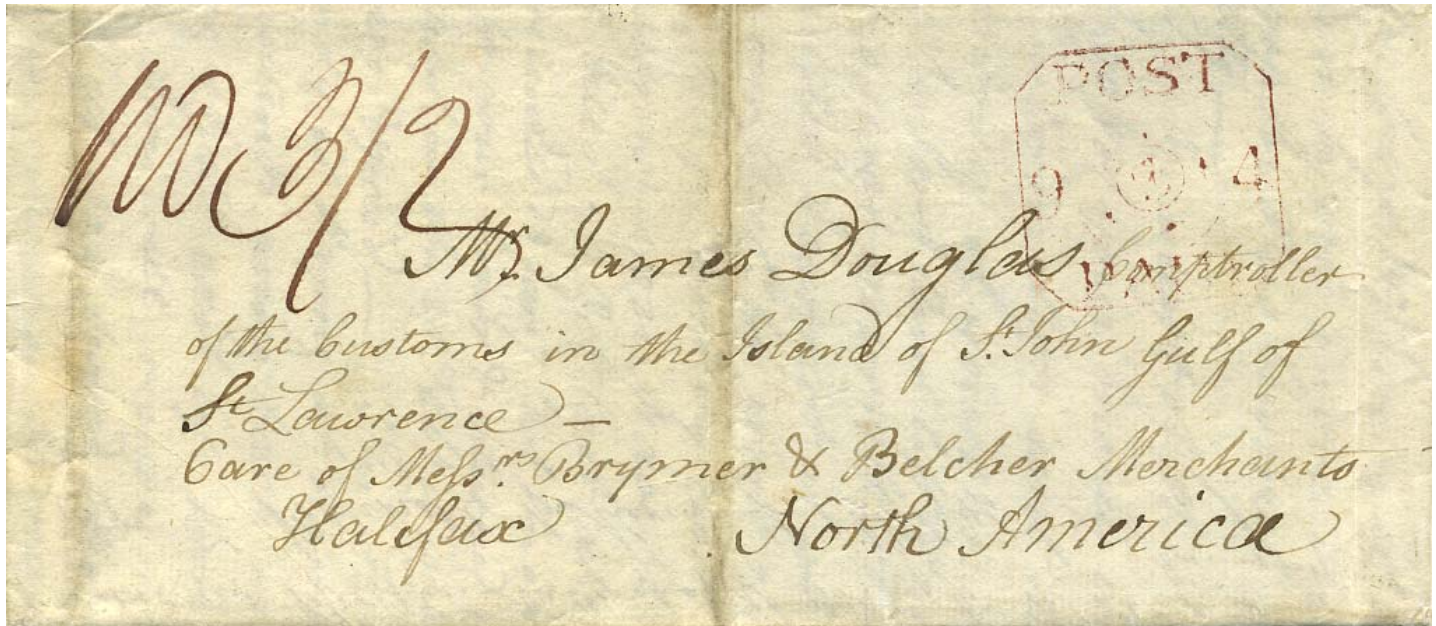 3/2
POST
9 4
Mr. James Douglas Comptroller
of the Customs in the Island of St. John Gulf of
St Lawrence –
Care of Messrs. Brymer & Belcher Merchants
Halifax North America